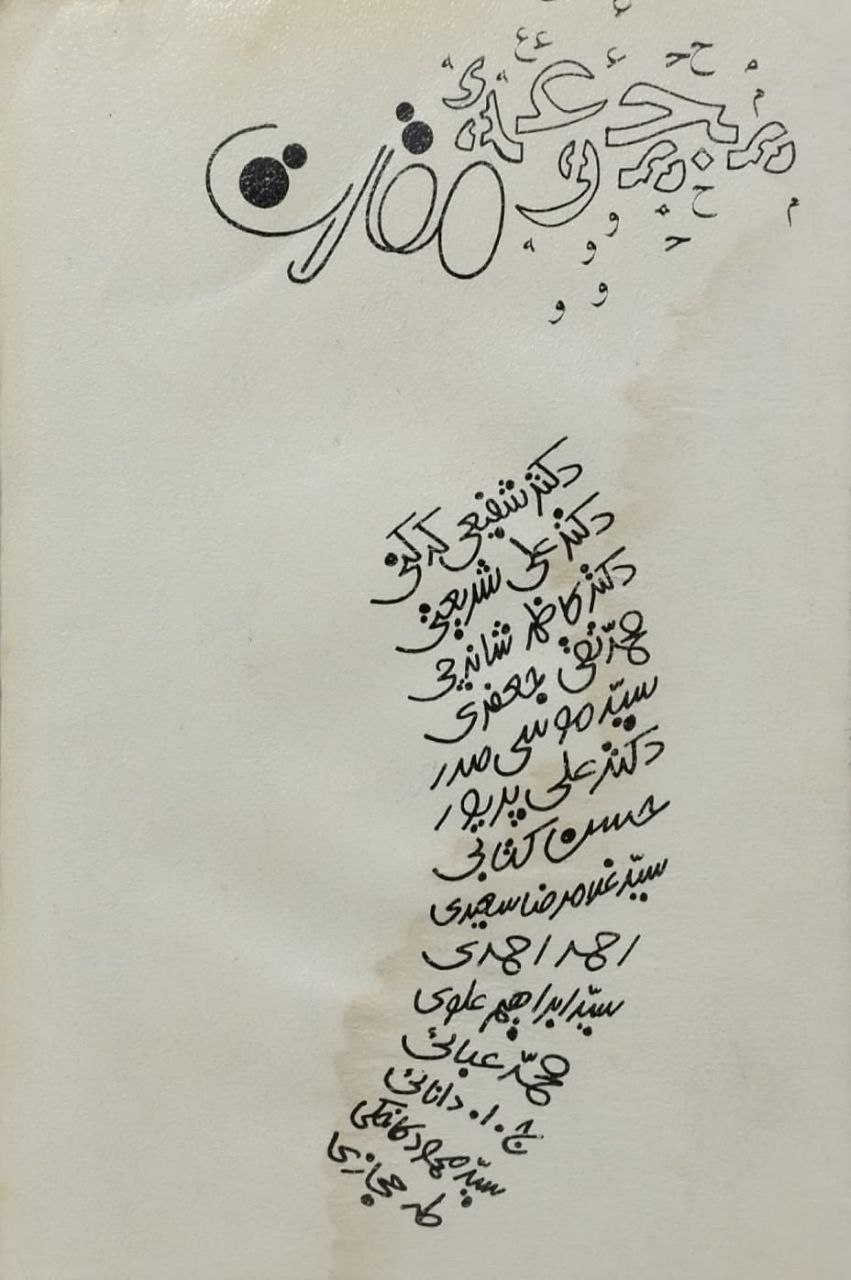 مجموعه مقالات
دکتر شفیعی کدکنی
دکتر علی شریعتی
دکتر کاظم شانه‌چی
محمّدتقی جعفری
سیّد موسی صدر
دکتر علی پریور
حسن کتابی
سیّد غلامرضا سعیدی
احمد احمدی
سیّد ابراهیم علوی
محمّد عبائی
ج.ا. دانائی
سیّد محمود کافکی
طه حجازی